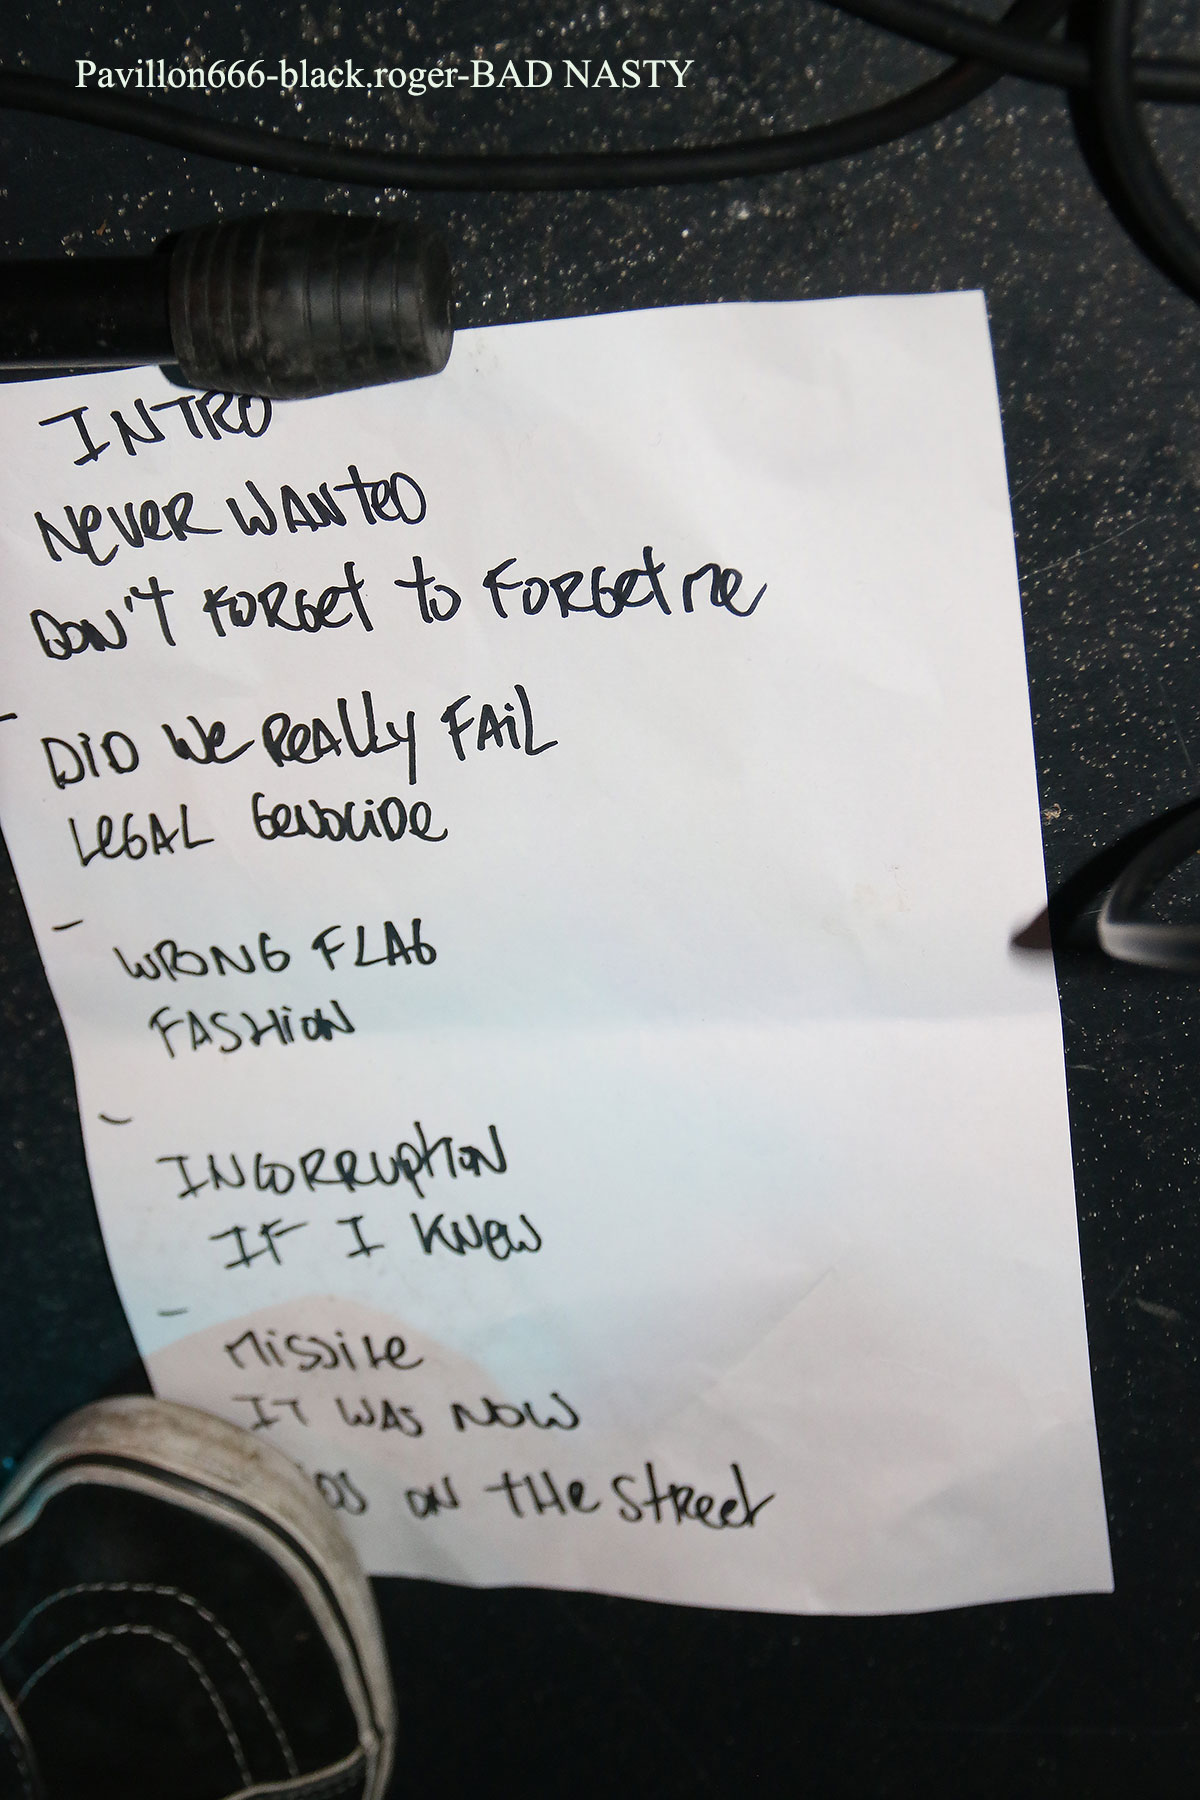 Pavillon666-black.roger-BAD NASTY
INTRO
NEVER WANTED
DON'T FORGET TO FORGET ME
-
DID WE REALLY FAIL
LEGAL GENOCIDE
-
WRONG FLAG
FASHION
-
INCORRUPTION
IF I KNEW
-
MISSILE
IT WAS NOW
ON THE STREET